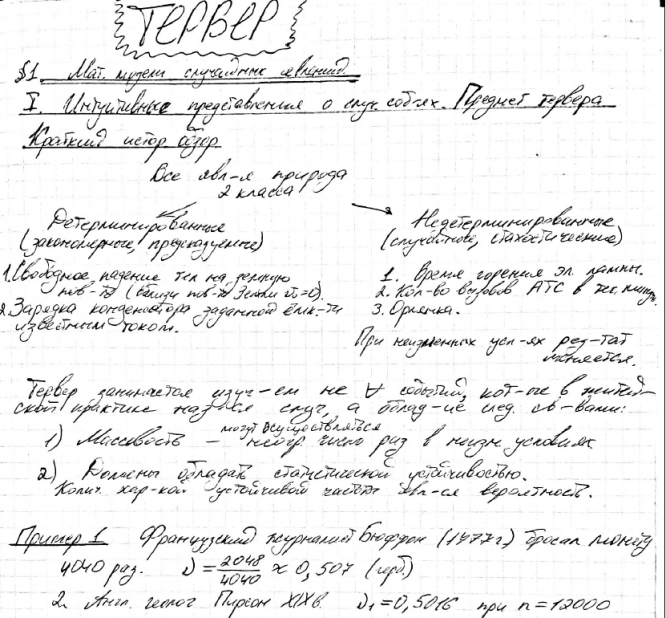 ТЕРВЕР
§1. Мат. модели случайных явлений.
I. Интуитивные представления о случ. соб-ях. Предмет тервера
Краткий истор обзор
Все явл-я природа
2 класса
Детерминированные
(закономерные, предсказуемые)
1. Свободное падение тел на земную
пов-ть (вблизи пов-ти Земли
2. Зарядка конденсатора заданной ёмк-ти
известным током.
Недетерминированные
(случайные, стахостические)
1. Время горения эл. лампы.
2. Кол-во вызовов АТС в теч. минуты
3. Орлянка.
При неизменных усл-ях рез-тат
меняется.
Тервер занимается изуч-ем не ∀ событий, кот-ые в житей-
ской практике наз-ся случ, а облад-ие след. св-вами:
могут осуществляться
1) Массовость – неогр число раз в неизм. условиях
2) Должны обладать статистической устойчивостью.
Колич. хар-кой устойчивой частоты явл-ся вероятность.
Пример 1 Французский журналист Бюффон (1777г) бросал монету
4040 раз. ν = 2048/4040 ≈ 0,507 (герб.)
2. Англ. геолог Пирсон XIX в. ν₁=0,5016 при n=12000